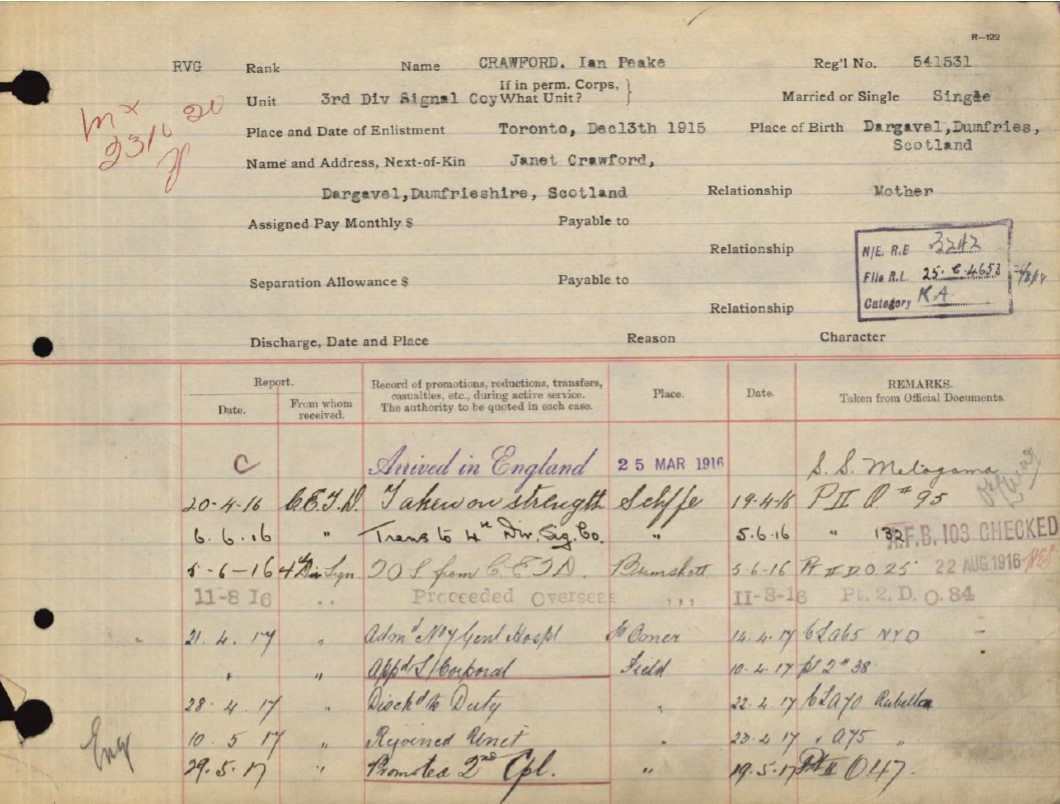 R-122
RVG Rank Name CRAWFORD. Ian Peake Reg'l No. 541531
Unit 3rd Div Signal Coy If in perm. Corps, What Unit? Married or Single Single
Place and Date of Enlistment Toronto, Dec13th 1915 Place of Birth Dargavel,Dumfries,
Scotland
Name and Address, Next-of-Kin Janet Crawford,
Dargavel,Dumfrieshire, Scotland Relationship Mother
Assigned Pay Monthly $ Payable to
Relationship
N/E. R.B 3242
File R.L. 25. C. 4653
Category KA
Separation Allowance $ Payable to
Relationship
Discharge, Date and Place Reason Character
Report. Record of promotions, reductions, transfers, casualties, etc., during active service. The authority to be quoted in each case. Place. Date. REMARKS. Taken from Official Documents.
Date. From whom received.
C Arrived in England 25 MAR 1916 S. S. Metagama
20-4-16 C.E.T.D. Taken on strength Sclffe 19-4-16 P II O # 95
6.6.16 " Trans to 4th Div. Sig. Co. " 5.6.16 " 132
A.F.B. 103 CHECKED
5-6-16 4th Div Sign TOS from C.E.T.D. Bramshott 5-6-16 Pt II D.O. 25 22 AUG. 1916
11-8 16 .. Proceeded Overseas ,,, 11-8-16 Pt. 2. D. O. 84
21. 4. 17 " Adm'd No 7 Genl Hospl St Omer 14. 4. 17 CL a65 NYD
" " App'd L/Corporal Field 10. 4. 17 pt 2 " 38
28. 4. 17 " Disch'd to Duty " 22. 4. 17 CL a70 Rubella
10. 5 17 " Rejoined Unit 23. 4 17 " a75 "
29.5.17 " Promoted 2nd Cpl. " 19.5.17 Pt II O 47.
Eng